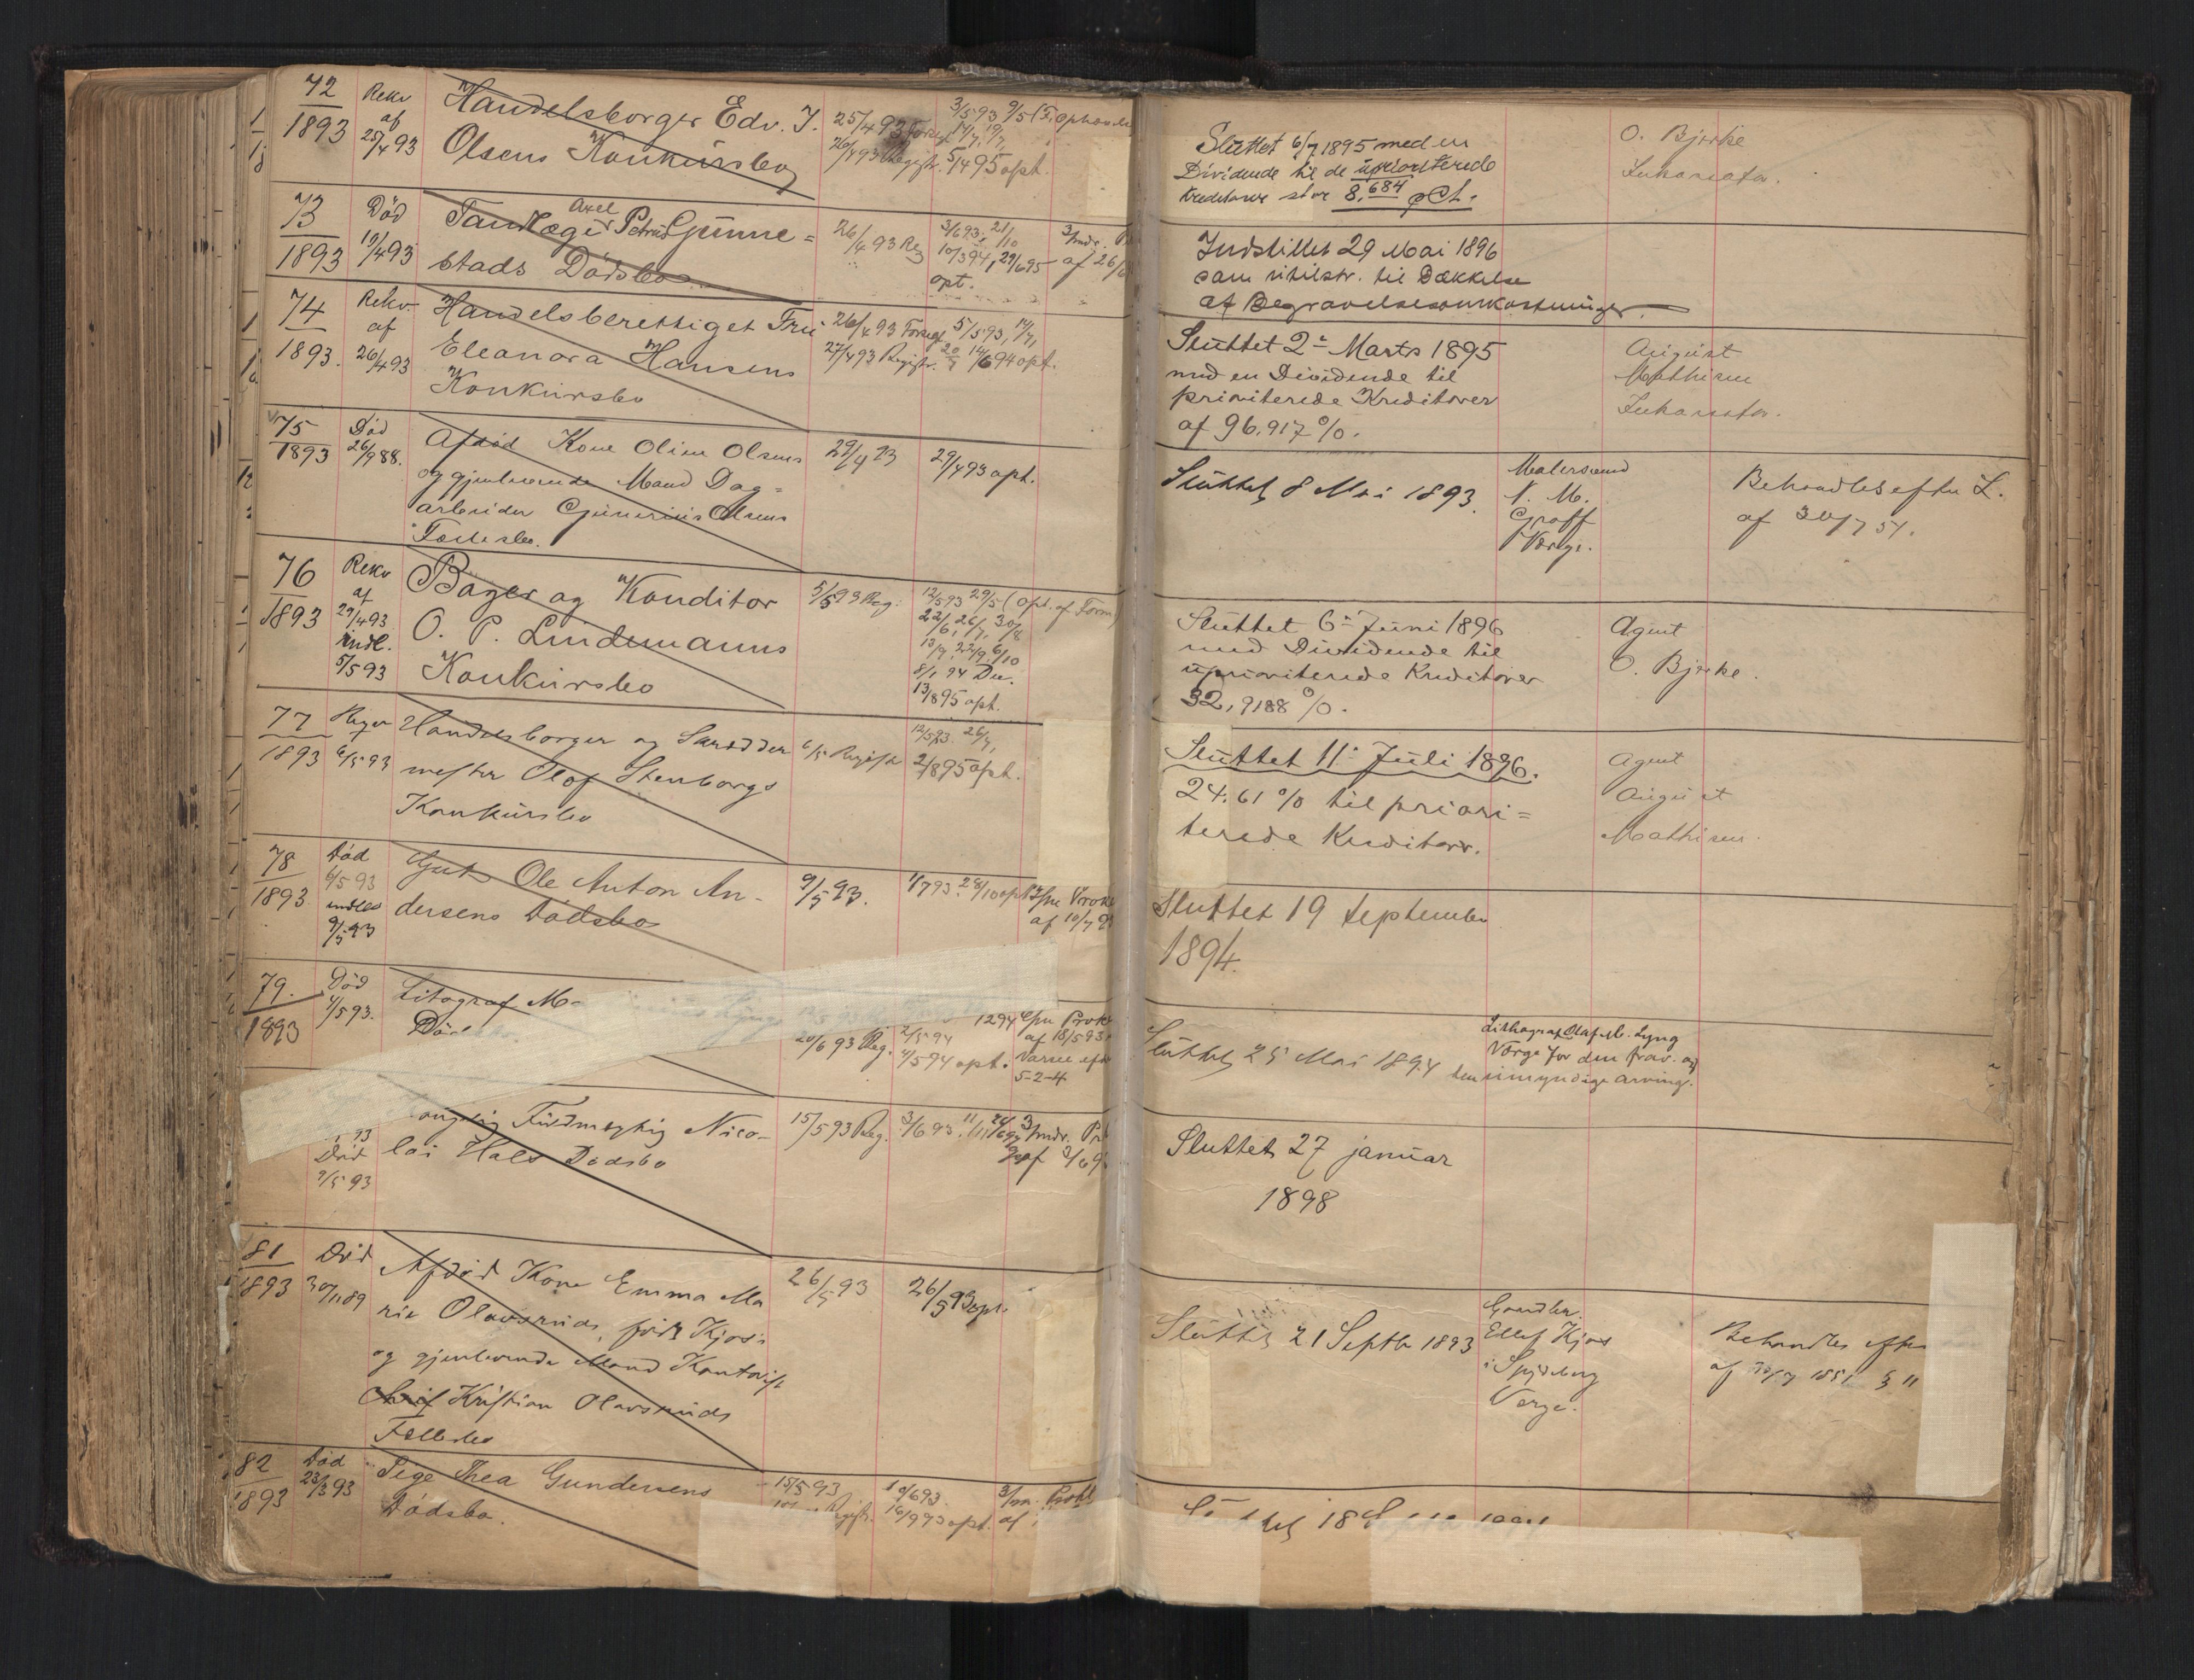 72
1893
Rekv
af
25/4 93
Handelsborger Edv. J.
Olsens Konkursbo
25/4 93 Forsegl
26/4 93 Registr.
3/5 93 9/5
5/4 95 opt.
Sluttet 6/7 1895 med en
Dividende til de uprioriterede
Kreditorer stor 8,684 pCt.
O. Bjerke
Inkassator.
73
1893
Död
19/4 93
Axel
Tandlæge Petrus Gunne=
stads Dödsbo
26/4 93 Reg
3/6 93, 21/10
10/3 94, 29/6 95
opt.
3/mdr.
af 26/
Indstillet 29 Mai 1896
som utilstr. til Dækkelse
af Begravelsesomkostninger.
74
1893.
Rekv.
af
26/4 93
Handelsberettiget Fru
Eleonora Hansens
Konkursbo
26/4 93 Forsegl
27/4 93 Registr.
5/5 93, 14/7,
14/6 94 opt.
Sluttet 2n Marts 1895
med en Dividende til
prioriterede Kreditorer
af 96.917 %.
August
Mathisen
Inkassator.
75
1893
Död
26/9 88.
Afdöd Kone Oline Olsens
og gjenlevende Mand Dag=
arbeider Gunerius Olsens
Fællesbo.
29/4 93
29/4 93 opt.
Sluttet 8 Mai 1893.
Malersvend
N. M.
Graff
Værge.
Behandles efter L.
af 30/7 51.
76
1893
Rekv
af
29/4 93
indl.
5/5 93
Bager og Konditor
O. P. Lindemanns
Konkursbo
5/5 93 Reg.
12/5 93 29/5 (opt. af Form)
22/6, 26/7, 30/8
13/9, 22/9, 6/10
8/1 94 Du.
13/8 95 opt.
Sluttet 6n Juni 1896
med Dividende til
uprioriterede Kreditorer
32,9188 %.
Agent
O. Bjerke.
77
1893
6/5 93
Handelsborger og Skrædder
mester Olof Stenborgs
Konkursbo
6/5 Registr
12/5 93. 26/7,
2/8 95 opt.
Sluttet 11n Juli 1896.
24.61 % til priori=
terede Kreditorer.
Agent
August
Mathisen.
78
1893
Död
6/5 93
indled
9/5 93
Gut Ole Anton An-
dersens Dödsbo
9/5 93.
1/7 93. 28/10 opt
af 10/7 9
Sluttet 19 September
1894.
79.
1893
Död
4/5 93.
Litograf M-
20/6 93 Reg.
2/5 94
4/5 94 opt.
1294
af 18/5 93
Varsel efter
5-2-4
Sluttet 25 Mai 1894
Lithograf Olaf M. Lyng
Værge for den frav. og
den umyndige arving.
93
Död
9/5 93
Fuldmægtig Nico-
lai Hals Dödsbo
15/5 93 Reg.
3/6 93. 11/11
3/mdr. Pr
af 3/6 9
Sluttet 27 januar
1898
81
1893
Död
30/11 89
Afdöd Kone Emma Ma
rie Olavsruds, født Kjos's
og gjenlevende Mand Kontorist
Kristian Olavsruds
Fællesbo
26/5 93
26/5 93 opt.
Sluttet 21 Septbr 1893
Gaardbr.
Ellef Kjos
i Spydeberg
Verge.
Behandles efter
af 30/7 1851 § 11
82
1893
Död
23/3 93
Pige Thea Gundersens
Dödsbo.
15/5 93
10/6 93.
16/9 93 opt.
3/m. Prokl
af